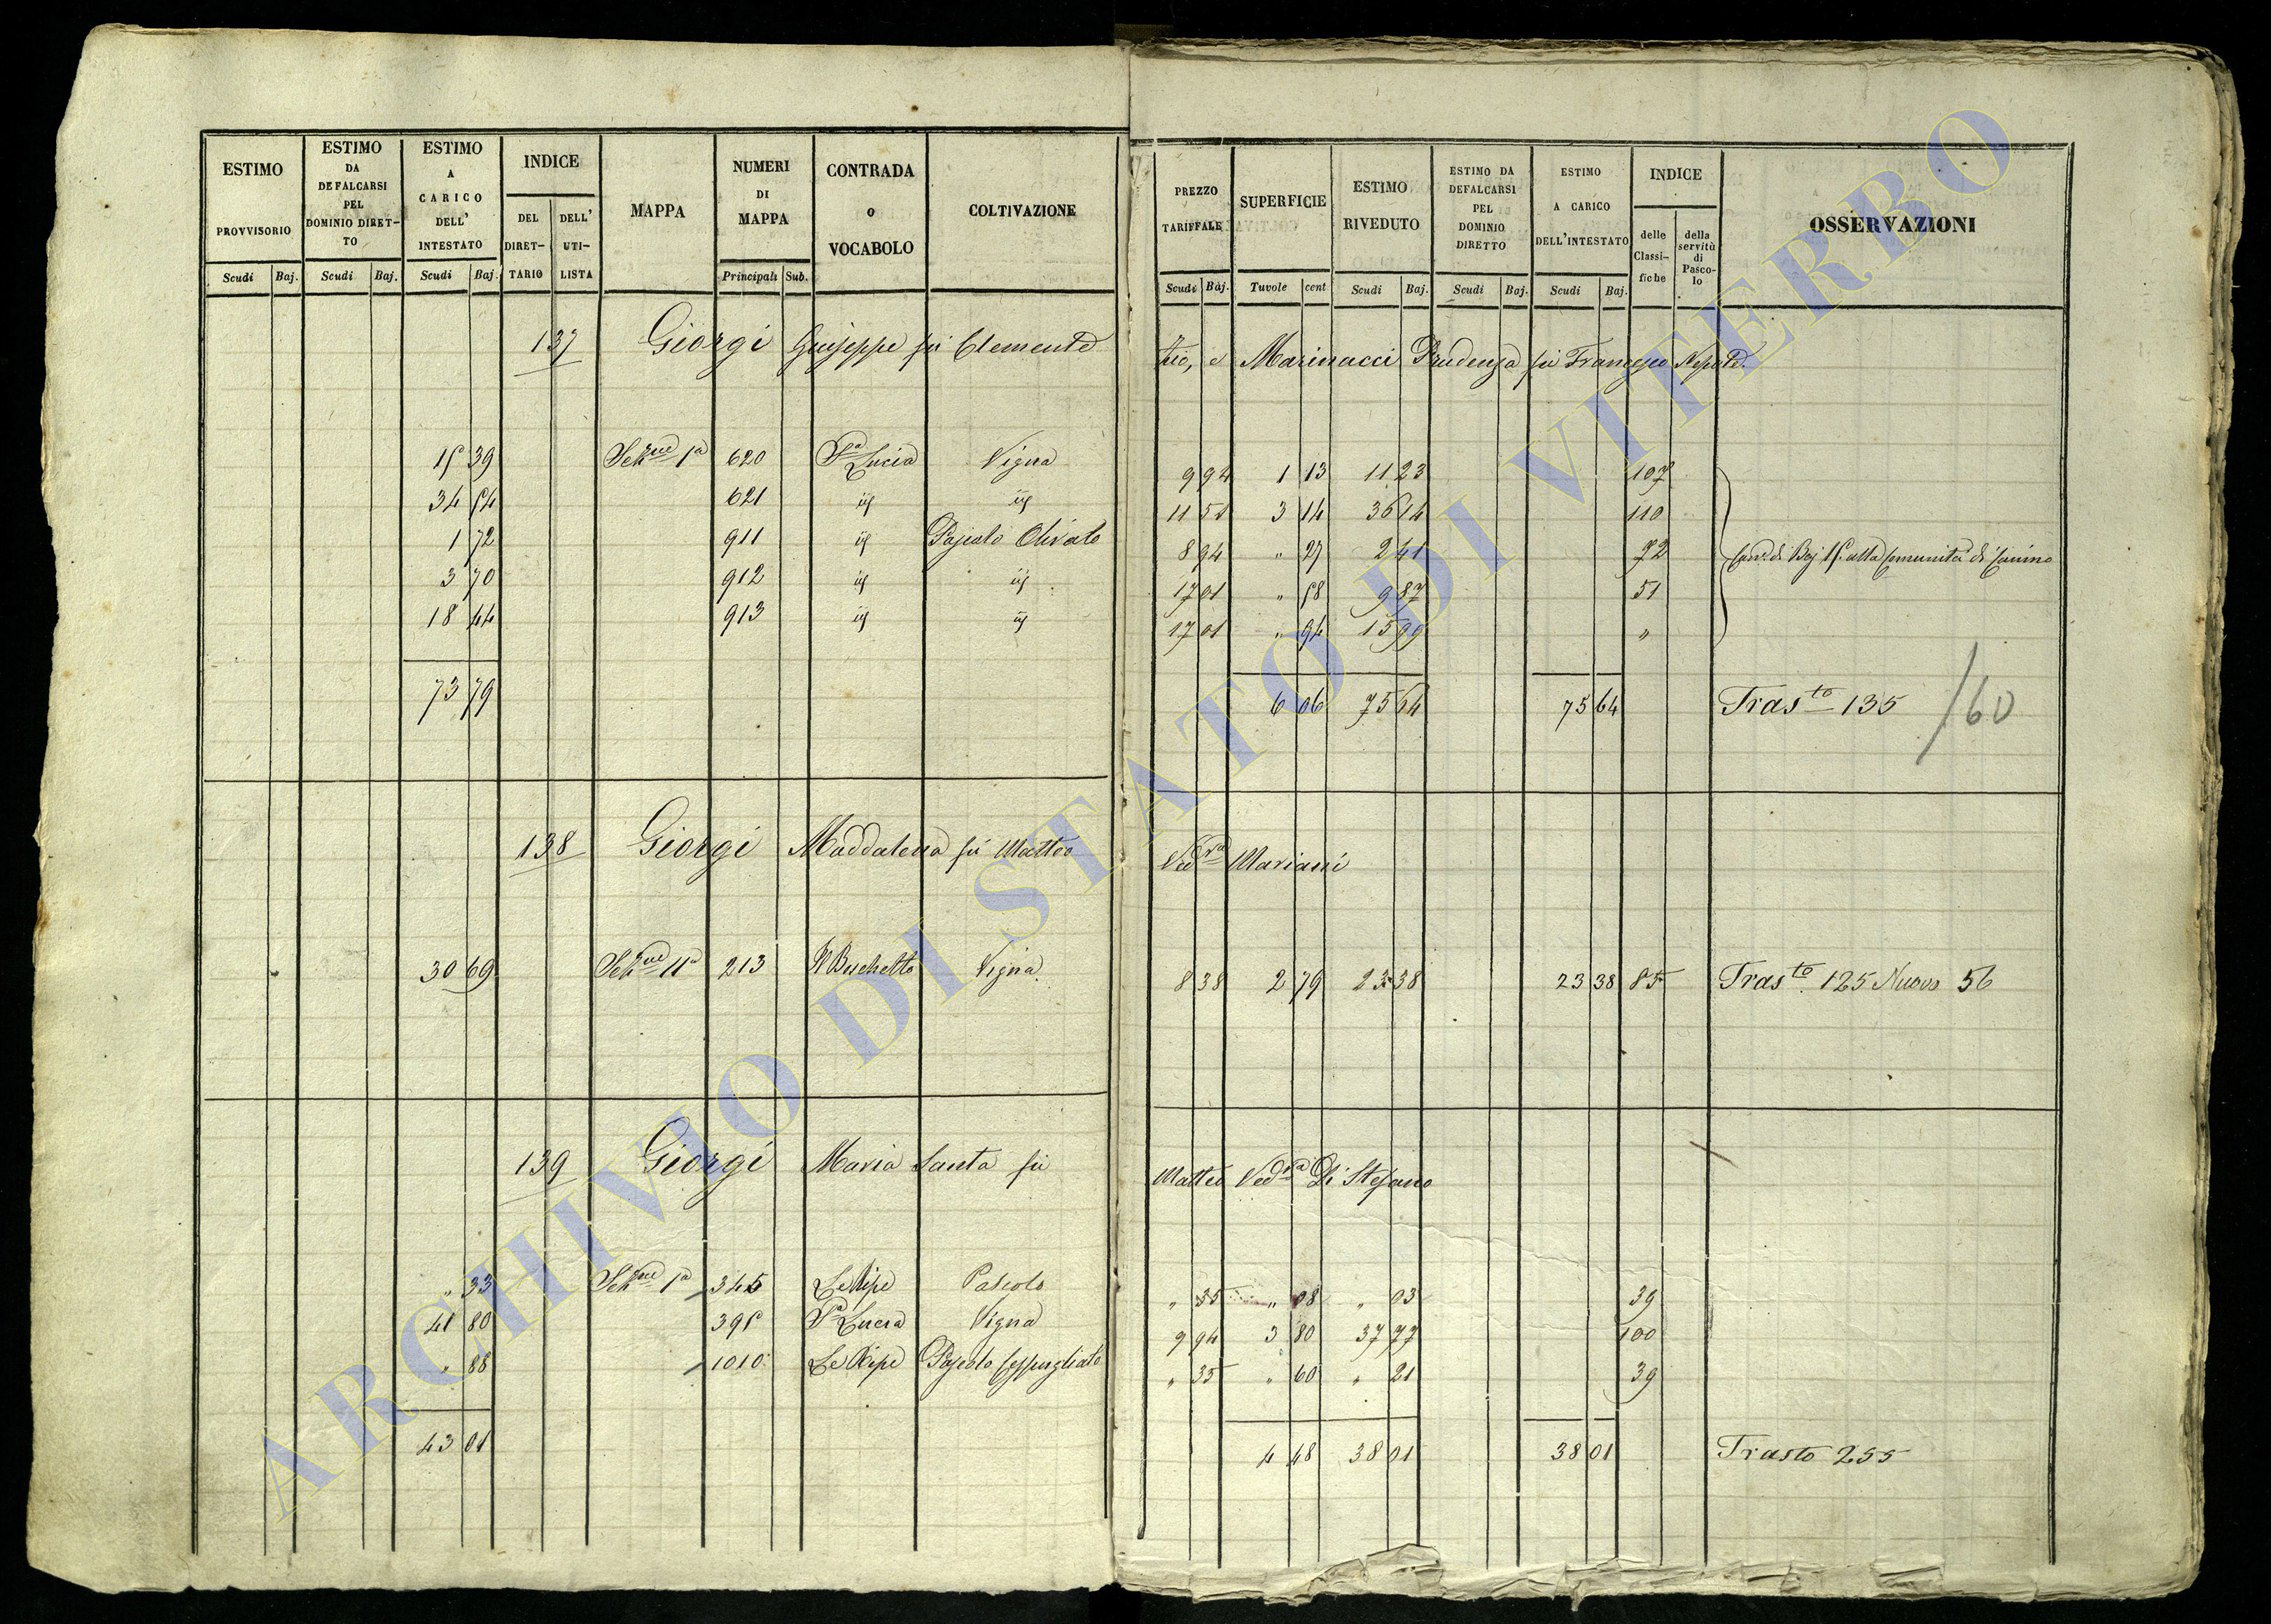 ESTIMO PROVVISORIO
Scudi Baj.
ESTIMO DA DEFALCARSI PEL DOMINIO DIRETTO
Scudi Baj.
ESTIMO A CARICO DELL' INTESTATO
Scudi Baj.
INDICE
DEL DIRETTARIO
DELL' UTILISTA
MAPPA
NUMERI DI MAPPA
Principali Sub.
CONTRADA O VOCABOLO
COLTIVAZIONE
PREZZO TARIFFALE
Scudi Baj.
SUPERFICIE
Tavole cent
ESTIMO RIVEDUTO
Scudi Baj.
ESTIMO DA DEFALCARSI PEL DOMINIO DIRETTO
Scudi Baj.
ESTIMO A CARICO DELL'INTESTATO
Scudi Baj.
INDICE
delle Classifiche
della servitù di Pascolo
OSSERVAZIONI
137 Giorgi Giuseppe fu Clemente Zio, e Marinucci Prudenza fu Francesco Nepote.
15 39 Sezne 1a 620 Sa Lucia Vigna 9 94 1 13 11 23 107
34 54 621 id id 11 51 3 14 36 14 110
1 72 911 id Pascolo Olivato 8 94 " 27 2 41 72 di Baj 15 alla Comunità di Canino
3 70 912 id id 17 01 " 58 9 87 51
18 44 913 id id 17 01 " 94 15 99 "
73 79 6 06 75 64 75 64 Trasto 135 /60
138 Giorgi Maddalena fu Matteo Veda Mariani
30 69 Sezne 11a 213 Il Boschetto Vigna 8 38 2 79 23 38 23 38 85 Trasto 125 Nuovo 56
139 Giorgi Maria Santa fu Matteo Veda Di Stefano
" 33 Sezne 1a 345 Le Ripe Pascolo " 35 " 08 " 03 39
41 80 395 Sa Lucia Vigna 9 94 3 80 37 77 100
" 88 1010 Le Ripe Pascolo Cespugliato " 35 " 60 " 21 39
43 01 4 48 38 01 38 01 Trasto 255
ARCHIVIO DI STATO DI VITERBO